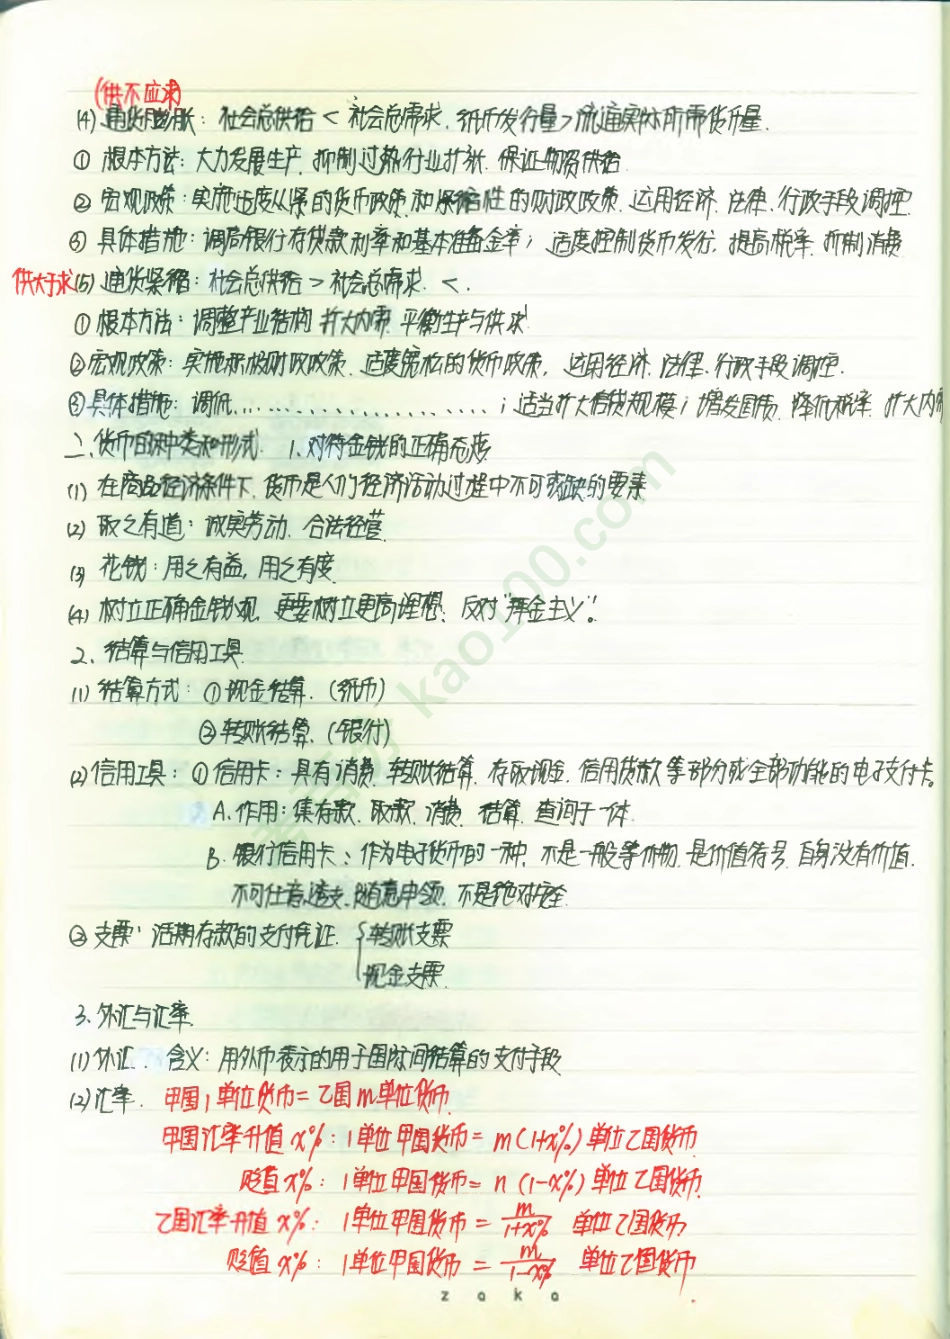 (供不应求)
(4) 通货膨胀：社会总供给 < 社会总需求. 纸币发行量 > 流通实际所需货币量.
① 根本方法：大力发展生产. 抑制过热行业扩张. 保证物资供给.
② 宏观政策：实施适度从紧的货币政策和紧缩性的财政政策. 运用经济. 法律、行政手段调控.
③ 具体措施：调高银行存贷款利率和基本准备金率；适度控制货币发行, 提高税率. 抑制消费
供大于求 (5) 通货紧缩：社会总供给 > 社会总需求. <.
① 根本方法：调整产业结构 扩大内需. 平衡生产与供求.
② 宏观政策：实施积极财政政策. 适度宽松的货币政策, 运用经济. 法律、行政手段调控.
③ 具体措施：调低……………………；适当扩大信贷规模；增发国债. 降低税率. 扩大内需
二、货币的种类和形式. 1、对待金钱的正确态度
(1) 在商品经济条件下, 货币是人们经济活动过程中不可或缺的要素
(2) 取之有道：诚实劳动. 合法经营.
(3) 花钱：用之有益, 用之有度.
(4) 树立正确金钱观, 更要树立更高理想, 反对"拜金主义"!
2、结算与信用工具.
(1) 结算方式：① 现金结算. (纸币)
② 转账结算. (银行)
(2) 信用工具：① 信用卡：具有消费. 转账结算. 存取现金. 信用贷款等部分或全部功能的电子支付卡。
A、作用：集存款. 取款. 消费. 结算. 查询于一体.
B. 银行信用卡：作为电子货币的一种, 不是一般等价物. 是价值符号. 自身没有价值.
不可任意透支、随意申领. 不是绝对安全.
② 支票：活期存款的支付凭证. { 转账支票
现金支票.
3、外汇与汇率.
(1) 外汇. 含义：用外币表示的用于国际间结算的支付手段
(2) 汇率. 甲国1单位货币 = 乙国m单位货币.
甲国汇率升值x%：1单位甲国货币 = m(1+x%)单位乙国货币
贬值x%：1单位甲国货币 = n(1-x%)单位乙国货币.
乙国汇率升值x%：1单位甲国货币 = m/1+x% 单位乙国货币
贬值x%：1单位甲国货币 = m/1-x% 单位乙国货币.
zoko
kao100.com